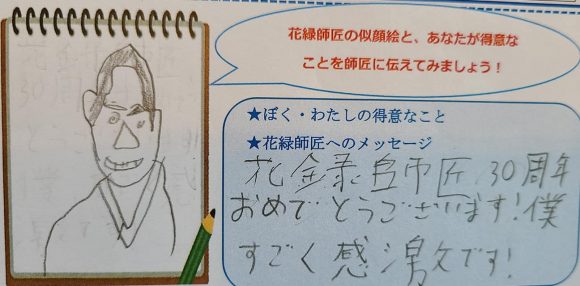 花緑師匠の似顔絵と、あなたが得意な
ことを師匠に伝えてみましょう！
★ぼく・わたしの得意なこと
★花緑師匠へのメッセージ
花録師匠30周年
おめでとうございます!僕
すごく感激です!